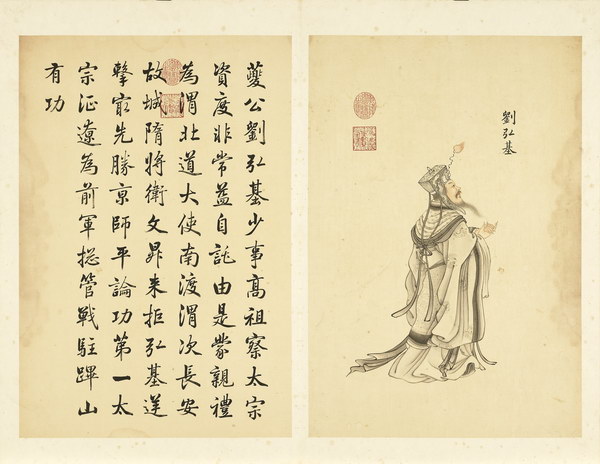 劉弘基
夔公劉弘基少事高祖察太宗
資度非常益自託由是蒙親禮
為渭北道大使南渡渭次長安
故城隋將衛文昇来拒弘基逆
擊冣先勝京師平論功第一太
宗征遼為前軍摠管戰駐蹕山
有功